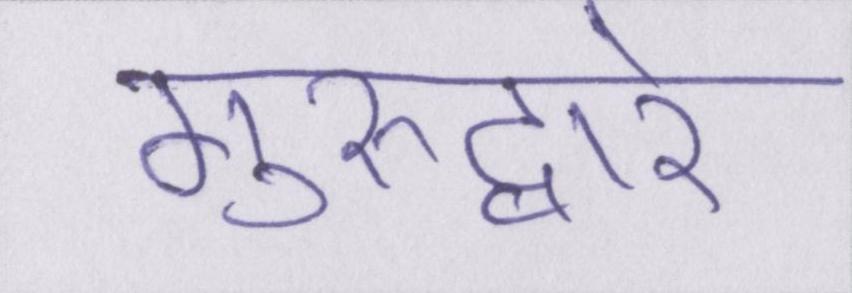 गुरुद्वारे